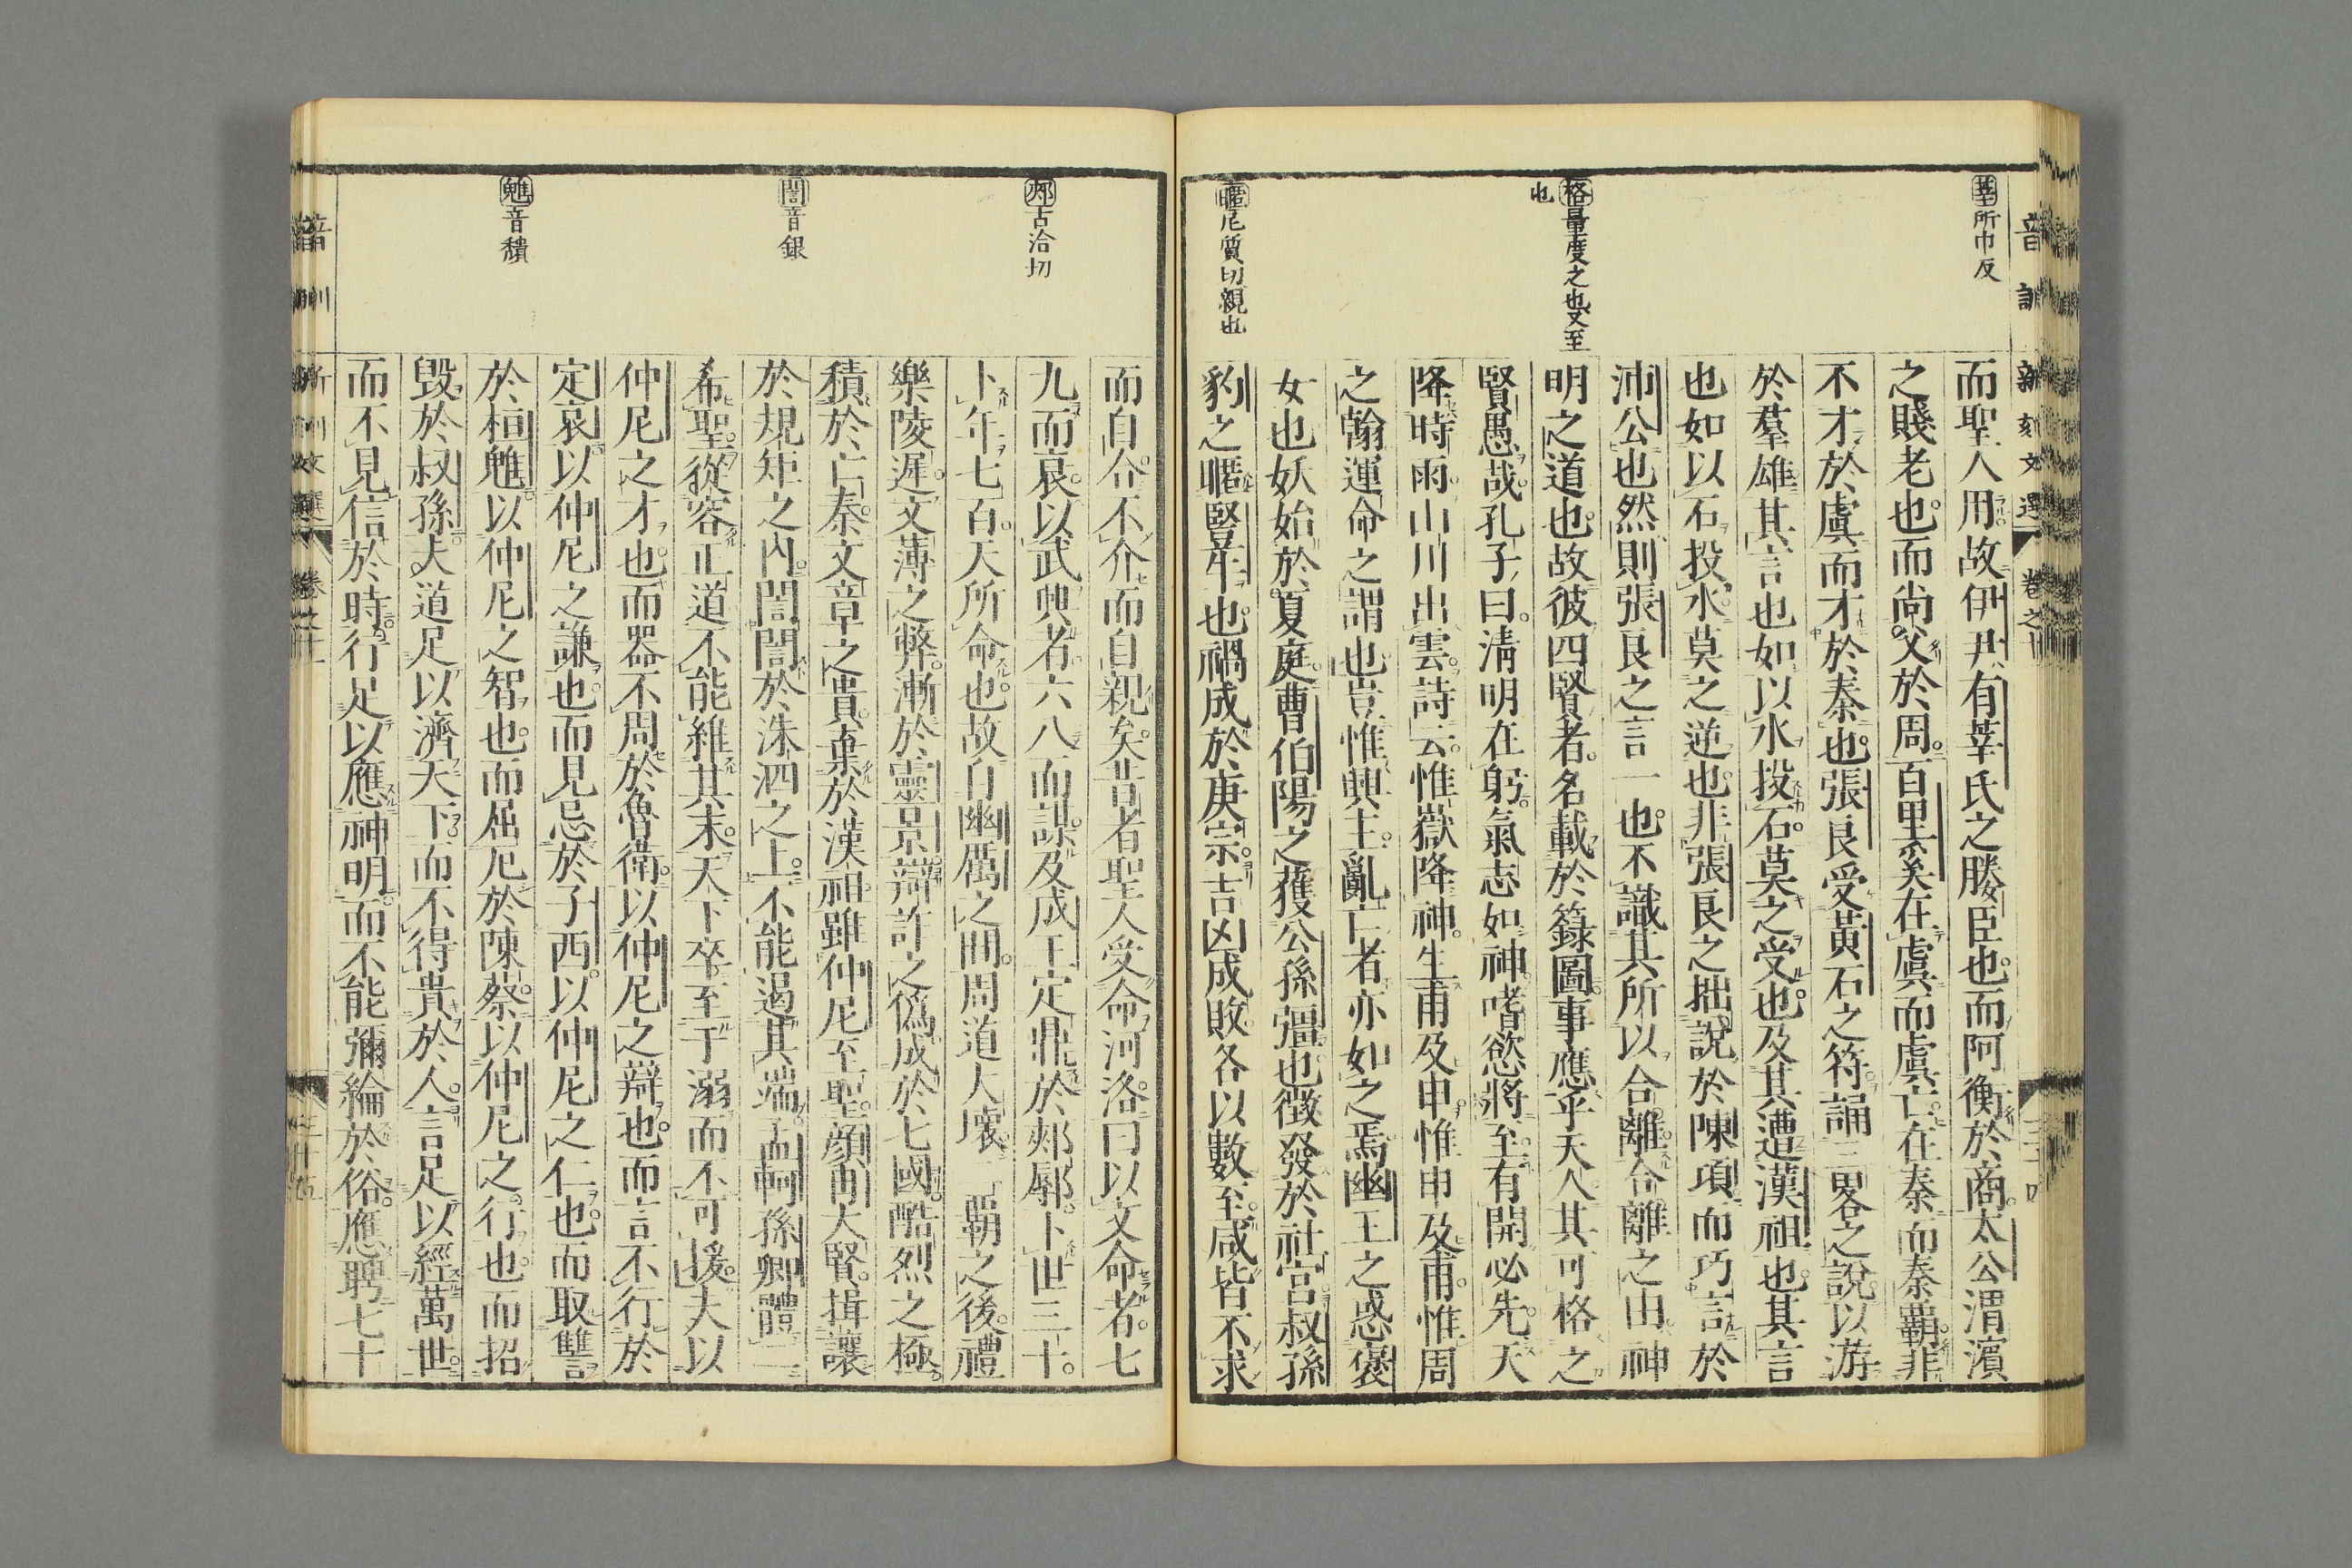 音訓 新刻文選 卷之十
莘所巾反
格量度之也又至
也
暱尼質切親也
而聖人用故伊尹有莘氏之媵臣也而阿衡於商太公渭濱
之賤老也而尚父於周百里奚在虞而虞亡在秦而秦霸非
不才於虞而才於秦也張良受黃石之符誦三畧之說以游
於羣雄其言也如以水投石莫之受也及其遭漢祖也其言
也如以石投水莫之逆也非張良之拙說於陳項而巧言於
沛公也然則張良之言一也不識其所以合離合離之由神
明之道也故彼四賢者名載於籙圖事應乎天人其可格之
賢愚哉孔子曰清明在躬氣志如神嗜慾將至有開必先天
降時雨山川出雲詩云惟嶽降神生甫及申惟申及甫惟周
之翰運命之謂也豈惟興主亂亡者亦如之焉幽王之惑褒
女也妖始於夏庭曹伯陽之獲公孫彊也徵發於社宮叔孫
豹之暱豎牛也禍成於庚宗吉凶成敗各以數至咸皆不求
郟古洽切
誾音銀
魋音穨
而自合不介而自親矣昔者聖人受命河洛曰以文命者七
九而衰以武興者六八而謀及成王定鼎於郟鄏卜世三十
卜年七百天所命也故自幽厲之間周道大壞二霸之後禮
樂陵遲文薄之弊漸於靈景辯詐之偽成於七國酷烈之極
積於亡秦文章之貴棄於漢祖雖仲尼至聖顏冉大賢揖讓
於規矩之內誾誾於洙泗之上不能遏其端孟軻孫卿體二
希聖從容正道不能維其末天下卒至于溺而不可援夫以
仲尼之才也而器不周於魯衛以仲尼之辯也而言不行於
定哀以仲尼之謙也而見忌於子西以仲尼之仁也而取讐
於桓魋以仲尼之智也而屈厄於陳蔡以仲尼之行也而招
毀於叔孫夫道足以濟天下而不得貴於人言足以經萬世
而不見信於時行足以應神明而不能彌綸於俗應聘七十